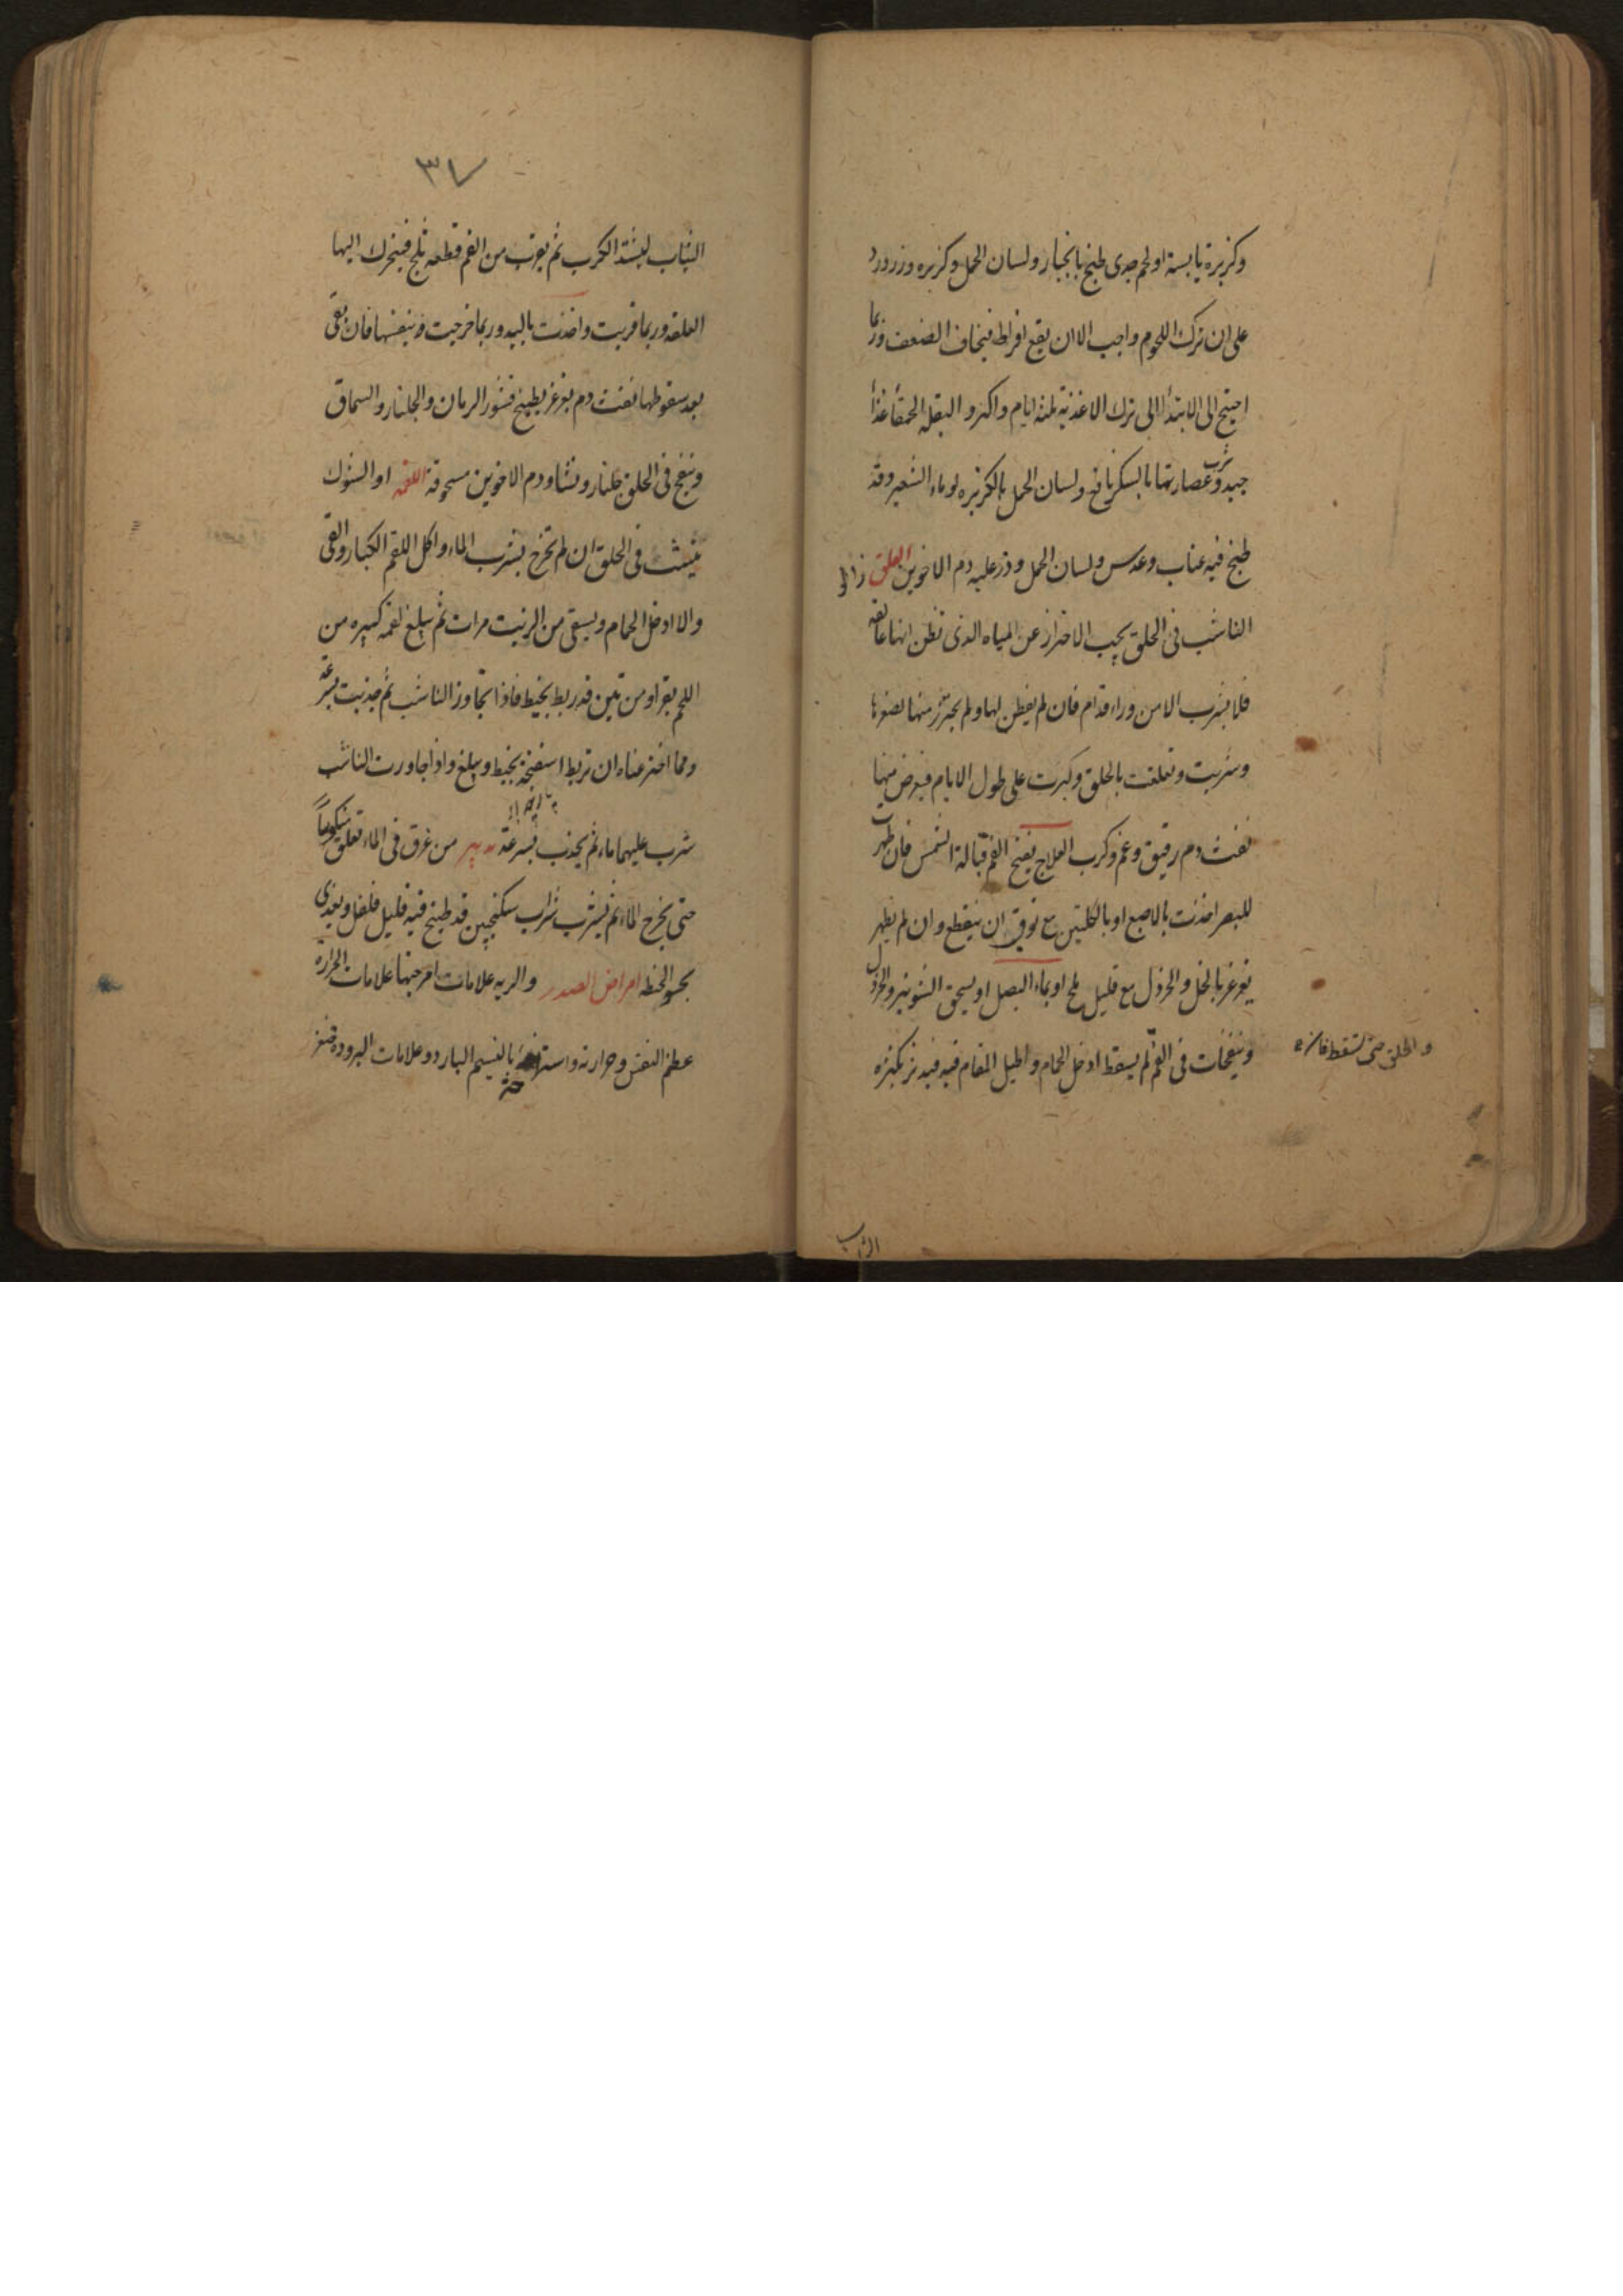 وكزبرة يابسة او لحم جدى طبخ بانجبار ولسان الحمل وكزبره وزرورد
على ان ترك اللحوم واجب الا ان يقع افراط فيخاف الضعف وربما
احتيج الى الابتدأ الى ترك الاغذية ثلثة ايام واكثر و البقلة الحمقأ غذأ
جيد وشرب عصارتها بالسكر نافع ولسان الحمل بالكزبره لو ماء الشعير وقد
طبخ فيه عناب وعدس ولسان الحمل وذر عليه دم الاخوين العلق زالو
الناشب فى الحلق يجب الاحتراز عن المياه الذى تظن انها عالقه
فلا يشرب الا من وراء فدام فان لم يفطن لها ولم يحترز منها لصغرها
وشربت وتعلقت بالحلق وكبرت على طول الايام فيعرض منها
نفث دم رقيق وغم وكرب العلاج يفتح الفم قبالة الشمس فان ظهرت
للبصر اخذت بالاصبع او بالكلبتين مع توقى ان ينقطع وان لم يظهر
يغرغر بالخل والخردل مع قليل ملح او بماء البصل او يسحق الشونيز والخردل
وينفخان فى الفم لم يسقط ادخل الحمام واطيل المقام فيه فيدثر بكثره
و الحلق حتى تسقط فان
الثياب
٣٧
الثياب ليشتد الكرب ثم يقرب من الفم قطعه ثلج فيتحرك اليها
العلقه وربما قربت واخذت باليد وربما خرجت بنفسها فان بقى
بعد سقوطها نفث دم يغرغر بطبيخ قشور الرمان والجلنار والسماق
وينفخ فى الحلق جلنار ونشا ودم الاخوين مسحوقة اللقمه او الشوك
ينشب فى الحلق ان لم تخرج بشرب الماء واكل اللقم الكبار والقى
والا ادخل الحمام ويسقى من الزيت مرات ثم يبلغ لقمه كبيره من
اللحم بقر او من تين قد ربط بخيط فاذا تجاوز الناشب ثم جذبت بسرعة
ومما اخترعناه ان تربط اسفنجة بخيط ويبلغ واذا جاورت الناشب
شرب عليهما ماء ثم يجذب بسرعة تدبير من غرق فى الماء تعلق منكوسا
حتى يخرج الماء ثم يشرب شراب سكنجبين قد طبخ فيه قليل فلفل ويغذى
بحسو الحنطه امراض الصدر والريه علامات امزجتها علامات الحرارة
عظم النفس وحرارته بالنسيم البارد وعلامات البروده صغر